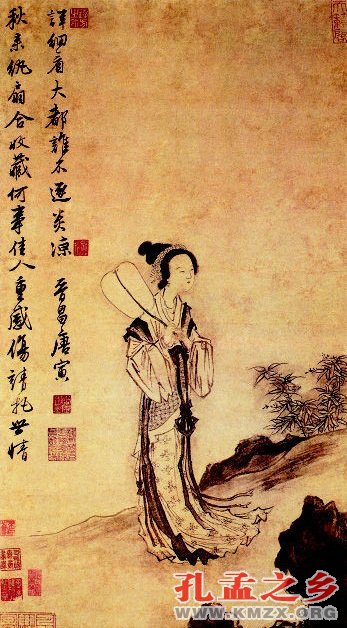 秋來紈扇合收藏何事佳人重感傷請托世情
詳細看大都誰不逐炎涼 晉昌唐寅
孔孟之乡
WWW.KMZX.ORG